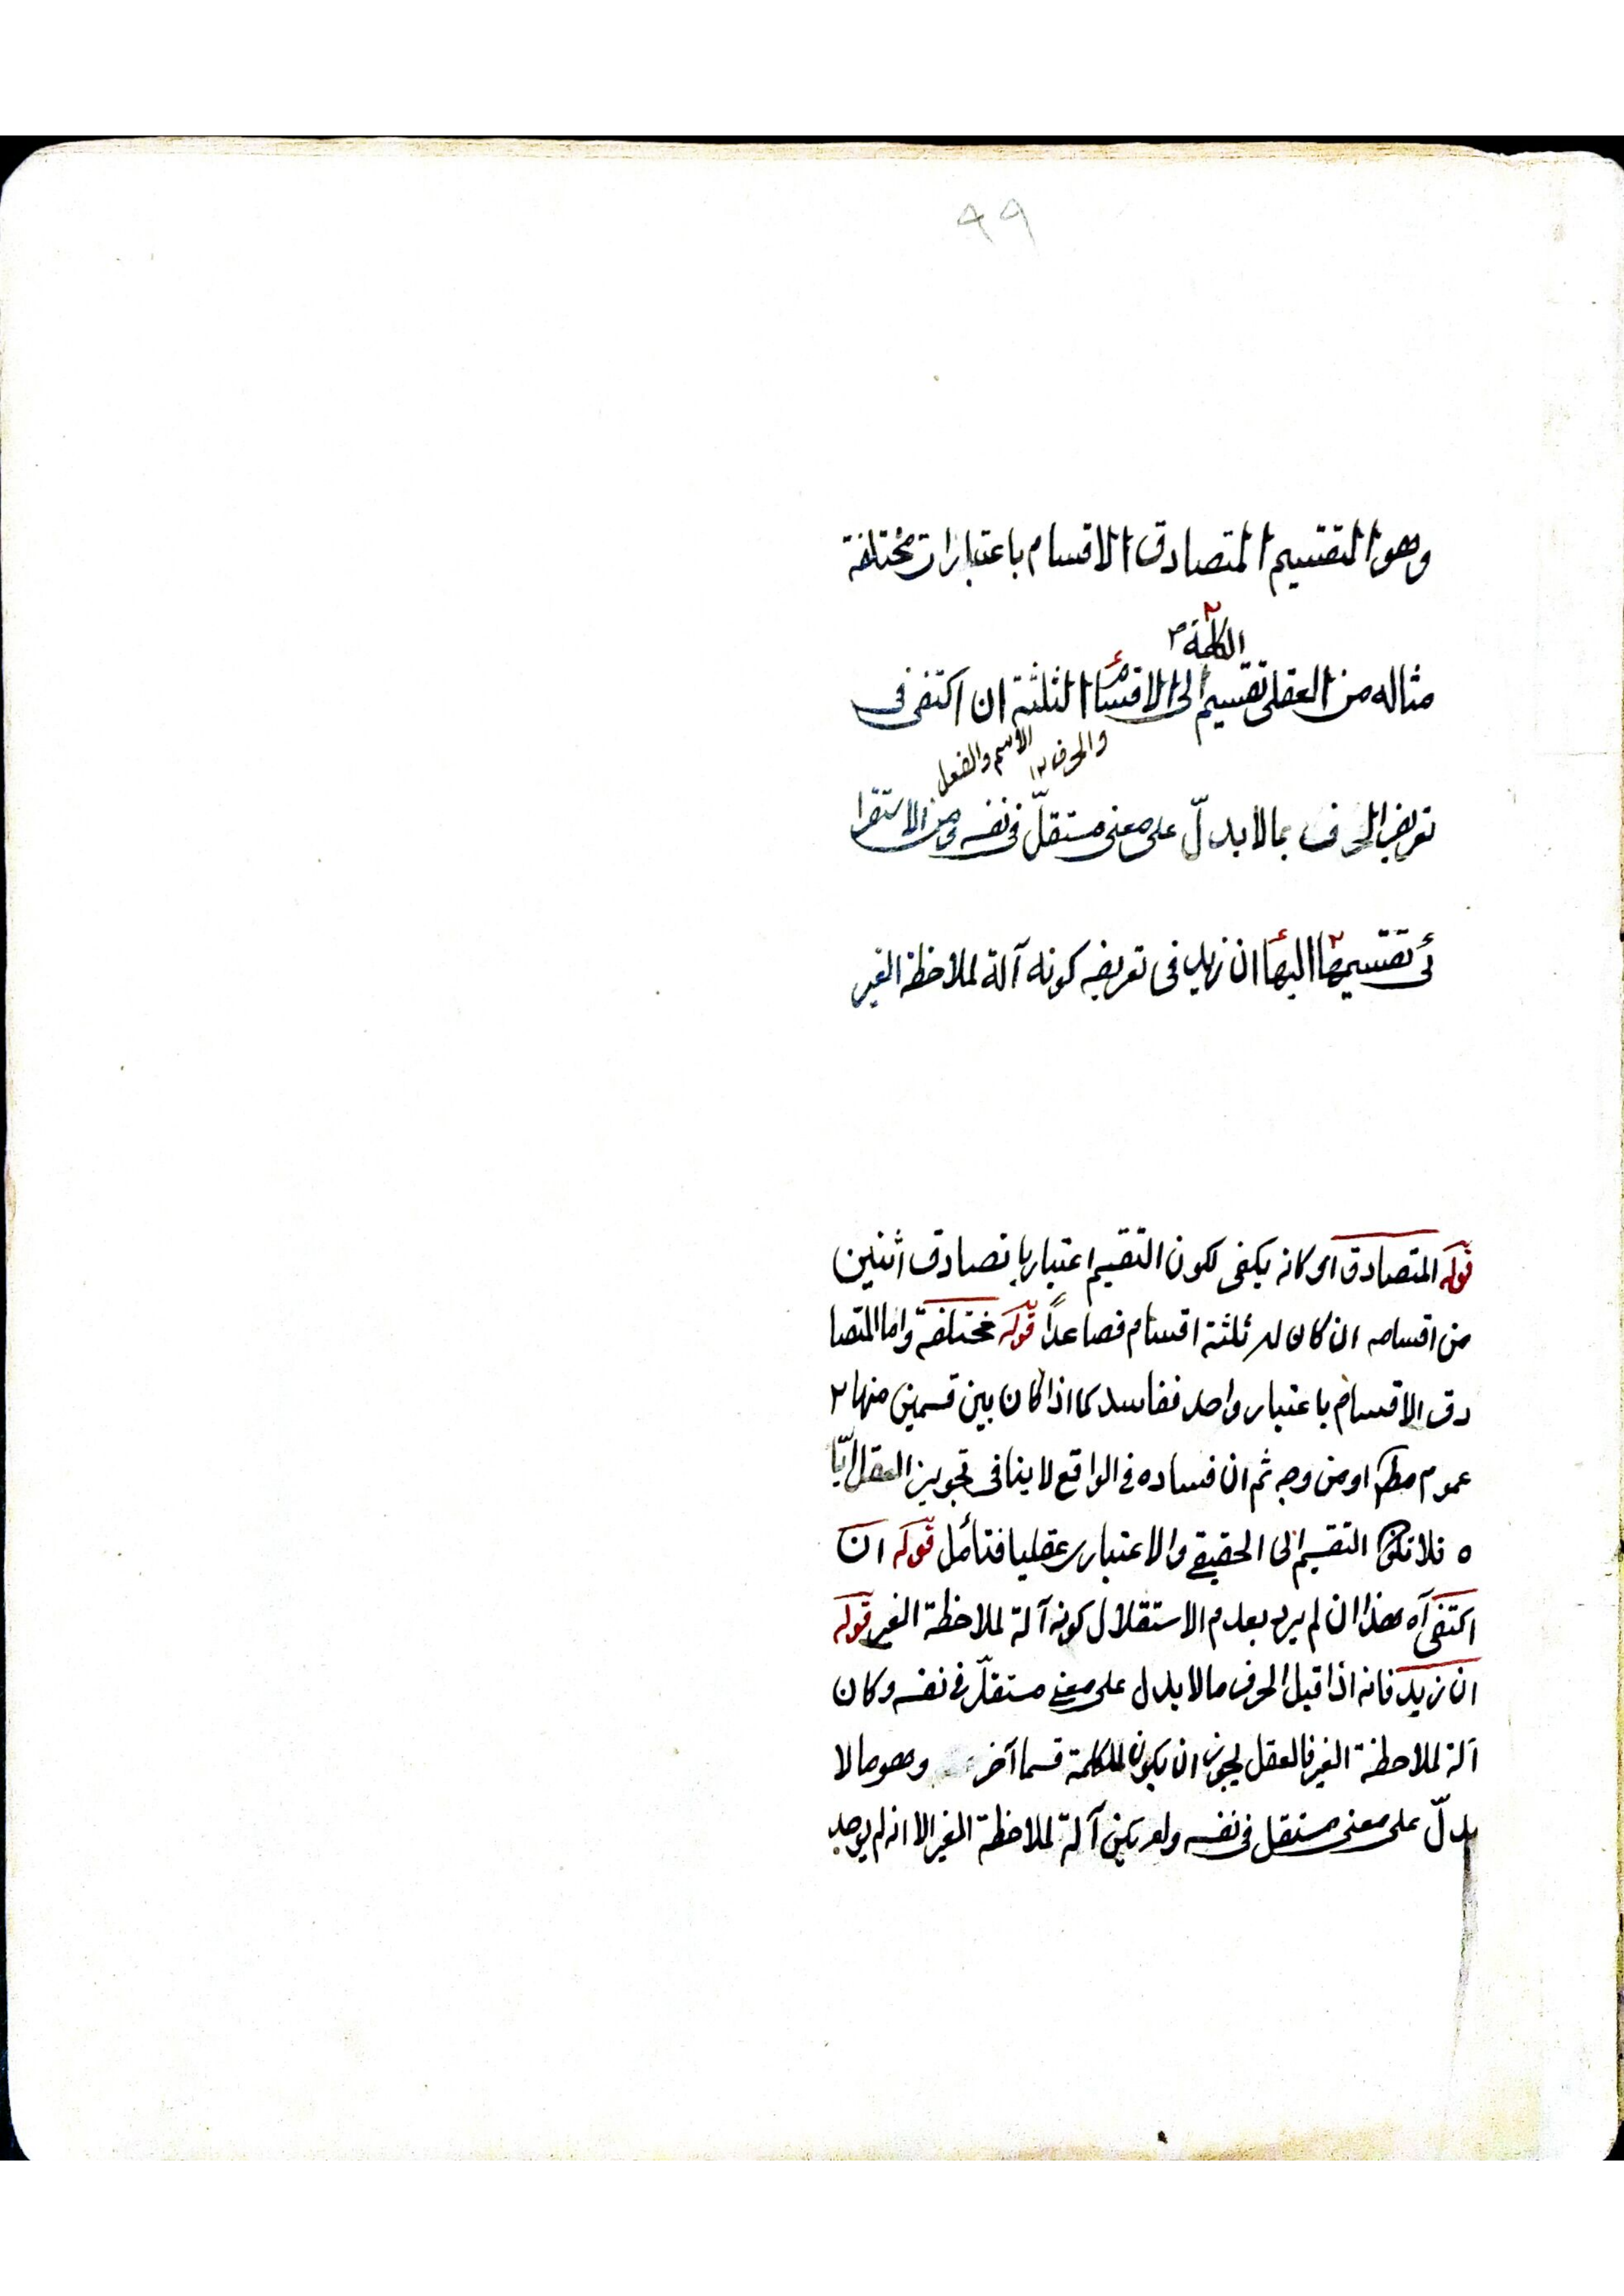 ٩٩
وهو التقسيم المتصادق الاقسام باعتبارات مختلفة
الكلمة
مثاله من العقلى تقسيم الى الاقسام الثلثة ان اكتفى فى
الاسم والفعل
والحرف ١٢
تعريف الحرف بما لا يدلّ على معنى مستقلّ فى نفسه ومن الاستقرا
ئى تقسيمها اليها ان زيد فى تعريفه كونه آلة لملاحظة الغير
قوله المتصادق اى كانه يكفى لكون التقسيم اعتباريا تصادق اثنين
من اقسامه ان كان له ثلثة اقسام فصاعدًا قوله مختلفة واما المتصا
دق الاقسام باعتبار واحد ففاسد كما اذا كان بين قسمين منها
عموم مط او من وجه ثم ان فساده فى الواقع لا ينافى تجويز العقل ايّا
ه فلا تكون التقسيم الى الحقيقى والاعتبارى عقليا فتأمل قوله ان
اكتفى آه هذا ان لم يرد بعدم الاستقلال كونه آلة لملاحظة الغير قوله
ان زيد فانه اذا قيل الحرف ما لا يدل على معنى مستقلّ فى نفسه وكان
آلة لملاحظة الغير فالعقل يجوز ان يكون للكلمة قسما آخر وهو ما لا
يدلّ على معنى مستقل فى نفسه ولم يكن آلة لملاحظة الغير الا انه لم يوجد